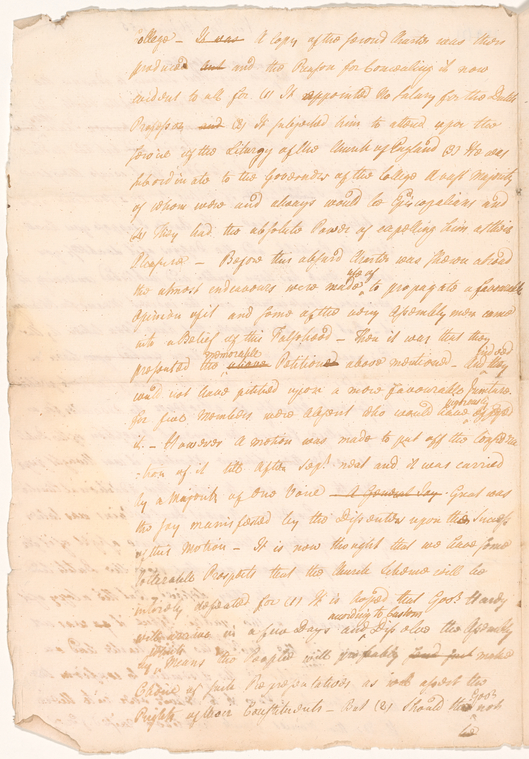 College – It was A Copy of the second Charter was then
produced and and the Reason for Concealing it now
evident to all for (1) It appointed No Salary for the Dutch
Professor and (2) It subjected him to attend upon the
service of the Liturgy of the Church of England (3) He was
subordinate to the Governors of the College a vast Majority
of whom were and always would be Episcopalians and
(4) They had the absolute Power of expelling him at their
Pleasure – Before this absurd Charter was shewn abroad
the utmost endeavours were made use of to propagate a favourable
Opinion of it and some of the very Assembly men came
into a Belief of this Falshood – Then it was that they
presented the above memorable Petition above mentioned – Indeed And they
could not have pitched upon a more favourable Juncture
for five Members were absent who would have opposed
it – However a Motion was made to put off the Considera
-tion of it till after Sept. next and it was carried
by a Majority of One Voice – A General Joy Great was
the Joy manifested by the Dissenters upon the Success
of this Motion – It is now thought that we have some
tollerable Prospects that the Church Scheme will be
intirely defeated for (1) It is hoped that Gov. Hardy
will arrive in a few Days and according to Custom Dissolve the Assembly
by which Means the People will probably make
Choice of such Representatives as will assert the
Rights of their Constituents – But (2) Should the Gov. not
be